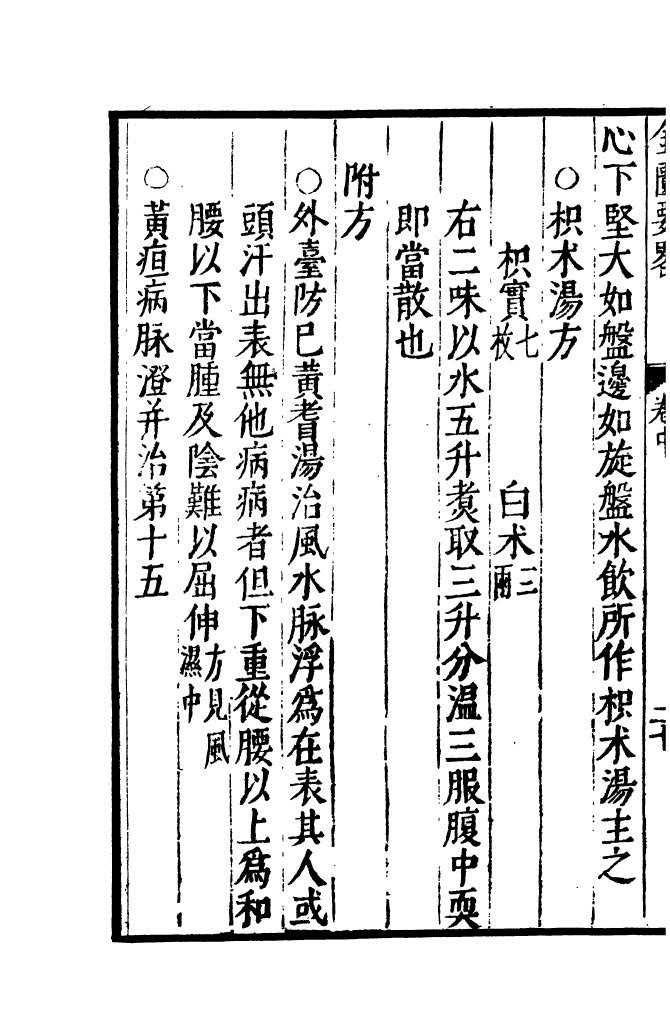 金匱要畧 卷中
心下堅大如盤邊如旋盤水飲所作枳术湯主之
○枳术湯方
枳實七枚 白术三兩
右二味以水五升煑取三升分温三服腹中耎
即當散也
附方
○外臺防已黃耆湯治風水脉浮爲在表其人或
頭汗出表無他病病者但下重從腰以上爲和
腰以下當腫及陰難以屈伸方見風濕中
○黃疸病脉證并治第十五